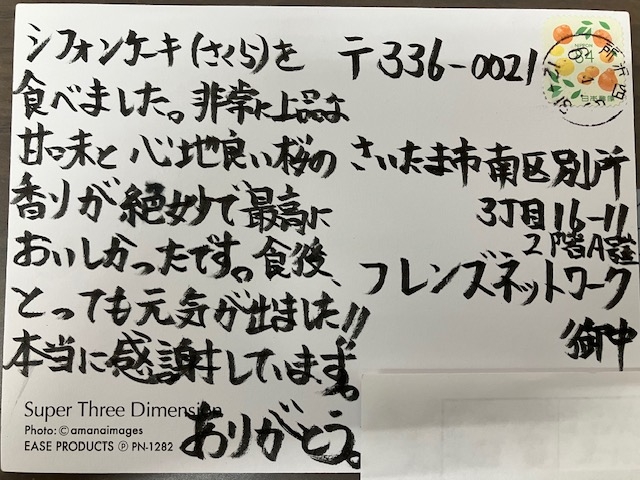 シフォンケーキ(さくら)を
食べました。非常に上品な
甘味と心地良い桜の
香りが絶妙で最高に
おいしかったです。食後、
とっても元気が出ました!!
本当に感謝しています。
ありがとう。
〒336-0021
さいたま市南区別所
3丁目16-11
2階A号室
フレンズネットワーク
御中
84
日本郵便
Super Three Dimension
Photo: ©amanaimages
EASE PRODUCTS Ⓟ PN-1282